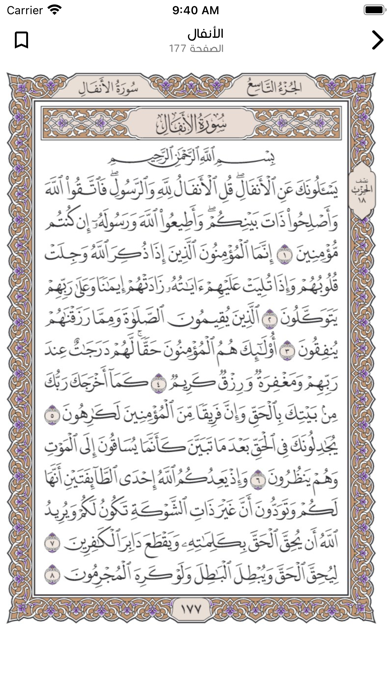 Carrier 9:40 AM
الأنفال
الصفحة 177
الجزء التاسع سورة الأنفال
سورة الأنفال
بِسْمِ اللَّهِ الرَّحْمَٰنِ الرَّحِيمِ
يَسْـَٔلُونَكَ عَنِ ٱلْأَنفَالِ ۖ قُلِ ٱلْأَنفَالُ لِلَّهِ وَٱلرَّسُولِ ۖ فَٱتَّقُوا۟ ٱللَّهَ
وَأَصْلِحُوا۟ ذَاتَ بَيْنِكُمْ ۖ وَأَطِيعُوا۟ ٱللَّهَ وَرَسُولَهُۥٓ إِن كُنتُم
مُّؤْمِنِينَ ١ إِنَّمَا ٱلْمُؤْمِنُونَ ٱلَّذِينَ إِذَا ذُكِرَ ٱللَّهُ وَجِلَتْ
قُلُوبُهُمْ وَإِذَا تُلِيَتْ عَلَيْهِمْ ءَايَٰتُهُۥ زَادَتْهُمْ إِيمَٰنًا وَعَلَىٰ رَبِّهِمْ
يَتَوَكَّلُونَ ٢ ٱلَّذِينَ يُقِيمُونَ ٱلصَّلَوٰةَ وَمِمَّا رَزَقْنَٰهُمْ
يُنفِقُونَ ٣ أُو۟لَٰٓئِكَ هُمُ ٱلْمُؤْمِنُونَ حَقًّا ۚ لَّهُمْ دَرَجَٰتٌ عِندَ
رَبِّهِمْ وَمَغْفِرَةٌ وَرِزْقٌ كَرِيمٌ ٤ كَمَآ أَخْرَجَكَ رَبُّكَ
مِنۢ بَيْتِكَ بِٱلْحَقِّ وَإِنَّ فَرِيقًا مِّنَ ٱلْمُؤْمِنِينَ لَكَٰرِهُونَ ٥
يُجَٰدِلُونَكَ فِى ٱلْحَقِّ بَعْدَ مَا تَبَيَّنَ كَأَنَّمَا يُسَاقُونَ إِلَى ٱلْمَوْتِ
وَهُمْ يَنظُرُونَ ٦ وَإِذْ يَعِدُكُمُ ٱللَّهُ إِحْدَى ٱلطَّآئِفَتَيْنِ أَنَّهَا
لَكُمْ وَتَوَدُّونَ أَنَّ غَيْرَ ذَاتِ ٱلشَّوْكَةِ تَكُونُ لَكُمْ وَيُرِيدُ
ٱللَّهُ أَن يُحِقَّ ٱلْحَقَّ بِكَلِمَٰتِهِۦ وَيَقْطَعَ دَابِرَ ٱلْكَٰفِرِينَ ٧
لِيُحِقَّ ٱلْحَقَّ وَيُبْطِلَ ٱلْبَٰطِلَ وَلَوْ كَرِهَ ٱلْمُجْرِمُونَ ٨
نصف
الحزب
١٨
١٧٧